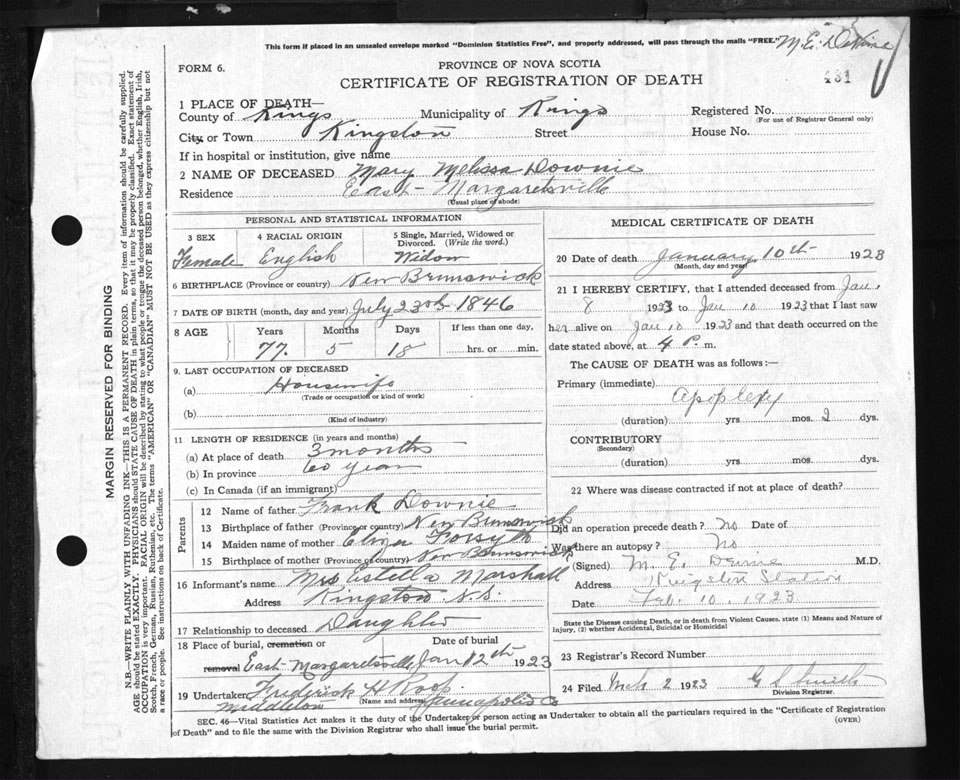 This form if placed in an unsealed envelope marked "Dominion Statistics Free", and properly addressed, will pass through the mails "FREE."
FORM 6.
PROVINCE OF NOVA SCOTIA
CERTIFICATE OF REGISTRATION OF DEATH
431
1 PLACE OF DEATH—
County of Kings Municipality of Kings Registered No.
(For use of Registrar General only)
City or Town Kingston Street House No.
If in hospital or institution, give name
2 NAME OF DECEASED Mary Melissa Downie
Residence East Margaretsville
(Usual place of abode)
PERSONAL AND STATISTICAL INFORMATION
3 SEX 4 RACIAL ORIGIN 5 Single, Married, Widowed or Divorced. (Write the word.)
Female English Widow
6 BIRTHPLACE (Province or country) New Brunswick
7 DATE OF BIRTH (month, day and year) July 23rd 1846
8 AGE Years Months Days If less than one day,
77. 5 18 hrs. or min.
9. LAST OCCUPATION OF DECEASED
(a) Housewife
(Trade or occupation or kind of work)
(b)
(Kind of industry)
11 LENGTH OF RESIDENCE (in years and months)
(a) At place of death 3 months
(b) In province 60 years
(c) In Canada (if an immigrant)
Parents
12 Name of father Frank Downie
13 Birthplace of father (Province or country) New Brunswick
14 Maiden name of mother Eliza Forsyth
15 Birthplace of mother (Province or country) New Brunswick
16 Informant's name Mrs Estella Marshall
Address Kingston N.S.
17 Relationship to deceased Daughter
18 Place of burial, cremation or removal Date of burial
East Margaretsville Jan 12th 1923
19 Undertaker Frederick H Roop
(Name and address)
Middleton Annapolis Co
MEDICAL CERTIFICATE OF DEATH
20 Date of death January 10th 1923
(Month, day and year)
21 I HEREBY CERTIFY, that I attended deceased from Jan.
8 1923 to Jan 10 1923 that I last saw
her alive on Jan 10 1923 and that death occurred on
date stated above, at 4 P. m.
The CAUSE OF DEATH was as follows:—
Primary (immediate)
Apoplexy
(duration) yrs mos. 2 dys.
CONTRIBUTORY
(Secondary)
(duration) yrs mos. dys.
22 Where was disease contracted if not at place of death?
Did an operation precede death? No Date of
Was there an autopsy? No
(Signed) M. E. M.D.
Address Kingston Station
Date Feb. 10. 1923
State the Disease causing Death, or in Death from Violent Causes, state (1) Means and Nature of Injury, (2) whether Accidental, Suicidal or Homicidal
23 Registrar's Record Number
24 Filed Mch 2 1923
Division Registrar.
SEC. 46—Vital Statistics Act makes it the duty of the Undertaker or person acting as Undertaker to obtain all the particulars required in the "Certificate of Registration
of Death" and to file the same with the Division Registrar who shall issue the burial permit.
(OVER)
MARGIN RESERVED FOR BINDING
N.B.—WRITE PLAINLY WITH UNFADING INK—THIS IS A PERMANENT RECORD. Every item of information should be carefully supplied.
AGE should be stated EXACTLY. PHYSICIANS should STATE CAUSE OF DEATH in plain terms, so that it may be properly classified. Exact statement of
OCCUPATION is very important. RACIAL ORIGIN will be described by stating to what people or tongue the deceased person belonged, whether English, Irish,
Scotch, French, German, Russian, Ruthenian, etc. The terms "AMERICAN" OR "CANADIAN" MUST NOT BE USED as they express citizenship but not
a race or people. See instructions on back of Certificate.